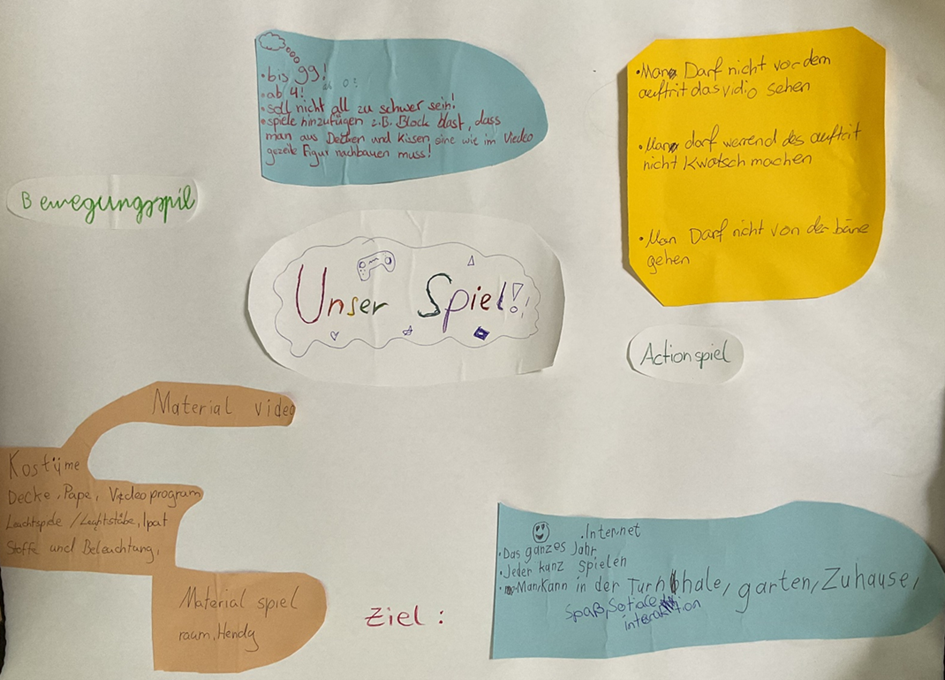 • bis 99!
• ab 4!
• soll nicht all zu schwer sein!
• spiele hinzufügen z.B. Block blast, dass
man aus Decken und Kissen eine wie im Viedeo
gezeite Figur nachbauen muss!
• Man Darf nicht vor dem
auftrit das vidio sehen
• Man darf werrend des auftrit
nicht Kwatsch machen
• Man Darf nicht von der büne
gehen
Bewegungsspil
Unser Spiel!
Actionspiel
Material video
Kostüme
Decke, Pape, Videoprogram
Leuchtspide / Leuchtstäbe, Ipat
Stoffe und Beleuchtung,
Material spiel
raum, Hendy
Ziel :
• Internet
• Das ganzes Jahr
• Jeder kanz spielen
• Man Kann in der Turnhale, garten, Zuhause,
Spaß, Sotiale
interaktion